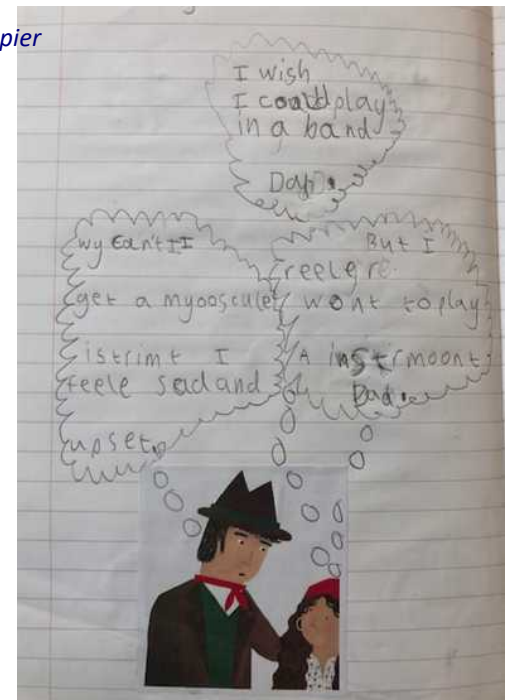 pier
I wish
I couldplay
in a band
Dad.
wy can't I I
get a myooscule
istrimt I
feele sad and
upset.
But I
reele
wont to play
A instrmoont
Dad.